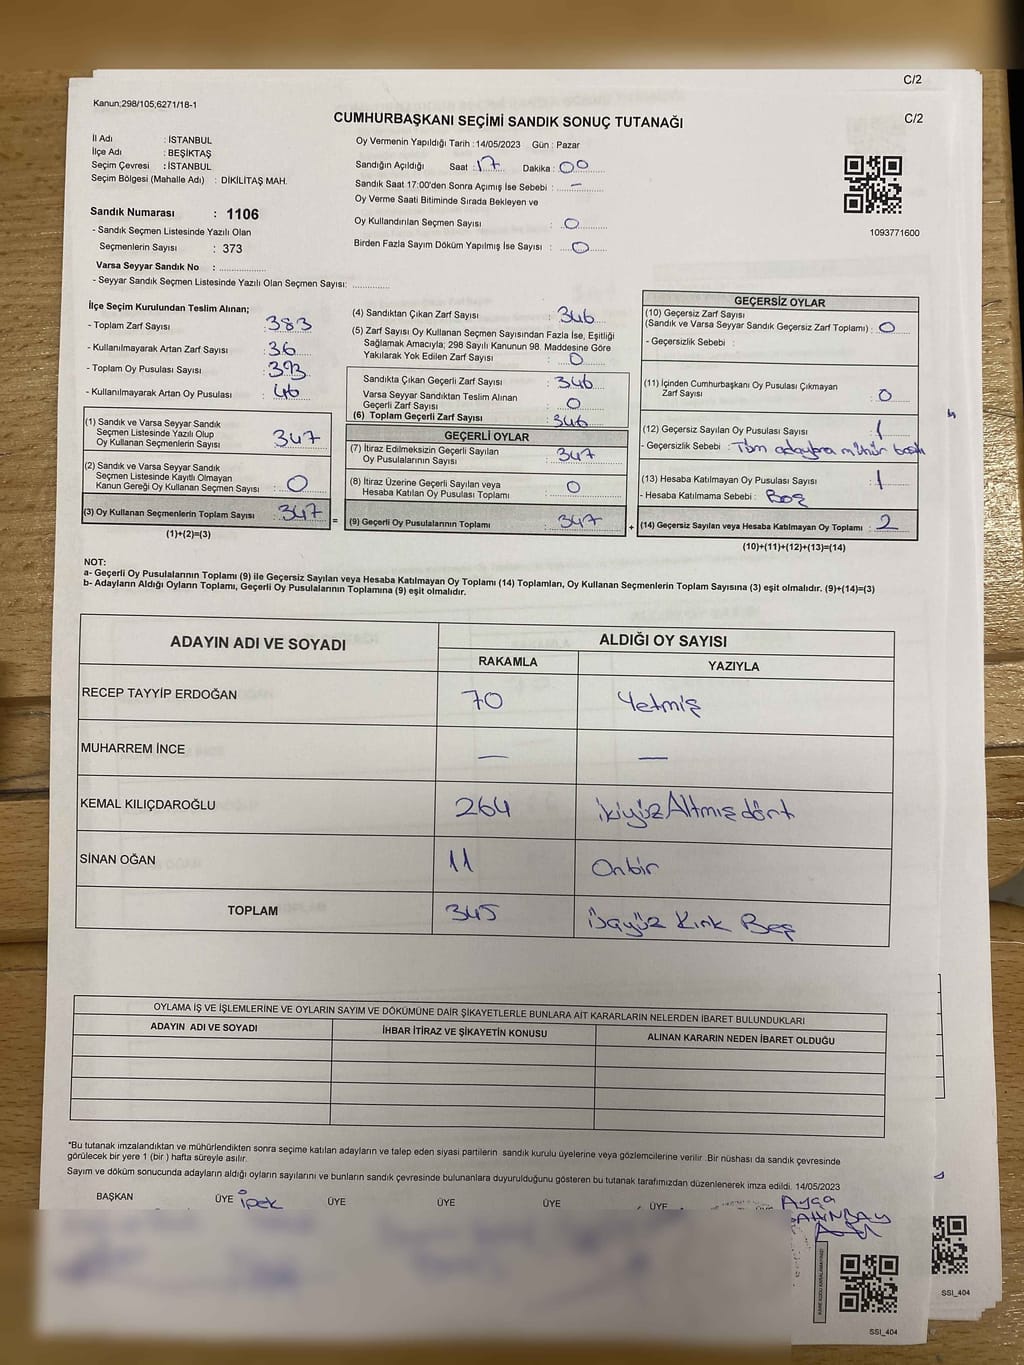 C/2
Kanun;298/105;6271/18-1
CUMHURBAŞKANI SEÇİMİ SANDIK SONUÇ TUTANAĞI
C/2
İl Adı : İSTANBUL
İlçe Adı : BEŞİKTAŞ
Seçim Çevresi : İSTANBUL
Seçim Bölgesi (Mahalle Adı) : DİKİLİTAŞ MAH.
Sandık Numarası : 1106
- Sandık Seçmen Listesinde Yazılı Olan
Seçmenlerin Sayısı : 373
Varsa Seyyar Sandık No :
- Seyyar Sandık Seçmen Listesinde Yazılı Olan Seçmen Sayısı:
Oy Vermenin Yapıldığı Tarih : 14/05/2023 Gün : Pazar
Sandığın Açıldığı Saat : 17 Dakika : 00
Sandık Saat 17:00'den Sonra Açımış İse Sebebi : —
Oy Verme Saati Bitiminde Sırada Bekleyen ve
Oy Kullandırılan Seçmen Sayısı : 0
Birden Fazla Sayım Döküm Yapılmış İse Sayısı : 0
1093771600
İlçe Seçim Kurulundan Teslim Alınan;
- Toplam Zarf Sayısı : 383
- Kullanılmayarak Artan Zarf Sayısı : 36
- Toplam Oy Pusulası Sayısı : 393
- Kullanılmayarak Artan Oy Pusulası : 46
(1) Sandık ve Varsa Seyyar Sandık
Seçmen Listesinde Yazılı Olup
Oy Kullanan Seçmenlerin Sayısı : 347
(2) Sandık ve Varsa Seyyar Sandık
Seçmen Listesinde Kayıtlı Olmayan
Kanun Gereği Oy Kullanan Seçmen Sayısı : 0
(3) Oy Kullanan Seçmenlerin Toplam Sayısı : 347
(1)+(2)=(3)
=
(4) Sandıktan Çıkan Zarf Sayısı : 346
(5) Zarf Sayısı Oy Kullanan Seçmen Sayısından Fazla İse, Eşitliği
Sağlamak Amacıyla; 298 Sayılı Kanunun 98. Maddesine Göre
Yakılarak Yok Edilen Zarf Sayısı : 0
Sandıkta Çıkan Geçerli Zarf Sayısı : 346
Varsa Seyyar Sandıktan Teslim Alınan
Geçerli Zarf Sayısı : 0
(6) Toplam Geçerli Zarf Sayısı : 346
GEÇERLİ OYLAR
(7) İtiraz Edilmeksizin Geçerli Sayılan
Oy Pusulalarının Sayısı : 347
(8) İtiraz Üzerine Geçerli Sayılan veya
Hesaba Katılan Oy Pusulası Toplamı : 0
(9) Geçerli Oy Pusulalarının Toplamı : 347
+
GEÇERSİZ OYLAR
(10) Geçersiz Zarf Sayısı
(Sandık ve Varsa Seyyar Sandık Geçersiz Zarf Toplamı) : 0
- Geçersizlik Sebebi :
(11) İçinden Cumhurbaşkanı Oy Pusulası Çıkmayan
Zarf Sayısı : 0
(12) Geçersiz Sayılan Oy Pusulası Sayısı : 1
- Geçersizlik Sebebi : Tüm adaylara mühür
(13) Hesaba Katılmayan Oy Pusulası Sayısı : 1
- Hesaba Katılmama Sebebi : Boş
(14) Geçersiz Sayılan veya Hesaba Katılmayan Oy Toplamı : 2
(10)+(11)+(12)+(13)=(14)
NOT:
a- Geçerli Oy Pusulalarının Toplamı (9) ile Geçersiz Sayılan veya Hesaba Katılmayan Oy Toplamı (14) Toplamları, Oy Kullanan Seçmenlerin Toplam Sayısına (3) eşit olmalıdır. (9)+(14)=(3)
b- Adayların Aldığı Oyların Toplamı, Geçerli Oy Pusulalarının Toplamına (9) eşit olmalıdır.
ADAYIN ADI VE SOYADI
ALDIĞI OY SAYISI
RAKAMLA YAZIYLA
RECEP TAYYİP ERDOĞAN 70 Yetmiş
MUHARREM İNCE — —
KEMAL KILIÇDAROĞLU 264 ikiyüzAltmışdört
SİNAN OĞAN 11 Onbir
TOPLAM 345 üçyüz Kırk Beş
OYLAMA İŞ VE İŞLEMLERİNE VE OYLARIN SAYIM VE DÖKÜMÜNE DAİR ŞİKAYETLERLE BUNLARA AİT KARARLARIN NELERDEN İBARET BULUNDUKLARI
ADAYIN ADI VE SOYADI İHBAR İTİRAZ VE ŞİKAYETİN KONUSU ALINAN KARARIN NEDEN İBARET OLDUĞU
*Bu tutanak imzalandıktan ve mühürlendikten sonra seçime katılan adayların ve talep eden siyasi partilerin sandık kurulu üyelerine veya gözlemcilerine verilir .Bir nüshası da sandık çevresinde
görülecek bir yere 1 (bir ) hafta süreyle asılır.
Sayım ve döküm sonucunda adayların aldığı oyların sayılarını ve bunların sandık çevresinde bulunanlara duyurulduğunu gösteren bu tutanak tarafımızdan düzenlenerek imza edildi. 14/05/2023
BAŞKAN ÜYE ipek ÜYE ÜYE ÜYE ÜYE
SSI_404
SSI_404